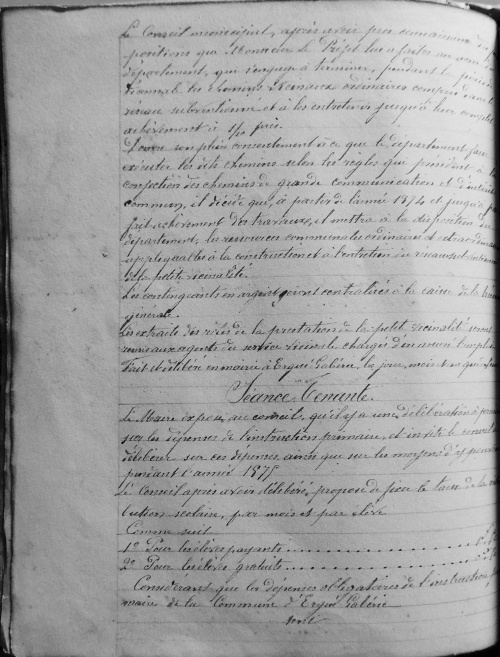 Le Conseil municipal, après avoir pris connaissance des
positions que Monsieur le Préfet lui a faites au nom du
département, qui s'engage à terminer, pendant la période
triennale les chemins vicinaux ordinaires compris dans le
réseau subventionné et à les entretenir jusqu'à leur complet
achèvement à
Donne son plein consentement à ce que le département fasse
exécuter les dits chemins selon les règles qui président à la
confection des chemins de grande communication et d'intérêt
commun, il décide que, à partir de l'année 1874 et jusqu'à par
fait achèvement des travaux, il mettra à la disposition du
département, les ressources communales ordinaires et extraordinaires
applicables à la construction et à l'entretien du réseau subventionné
de la petite vicinalité.
Les contingents en argent seront centralisés à la caisse de la
générale.
Les extraits des rôles de la prestation de la petite vicinalité seront
remis aux agents du service vicinal chargés d'en suivre l'emploi
Fait et délibéré en mairie à Ergué Gabéric, les jour, mois et an que
Séance Tenante.
Le Maire expose au conseil, qu'il y a une délibération à prendre
sur les dépenses de l'instruction primaire, et invite le conseil
délibérer sur ces dépenses, ainsi que sur les moyens d'y pourvoir
pendant l'année 1875
Le Conseil après avoir délibéré, propose de fixer le taux de la
bution scolaire, par mois et par élève
Comme suit
1º Pour les élèves payants
2º Pour les élèves gratuits
Considérant que les dépenses obligatoires de l'instruction
maire de la Commune d'Ergué Gabéric
sont